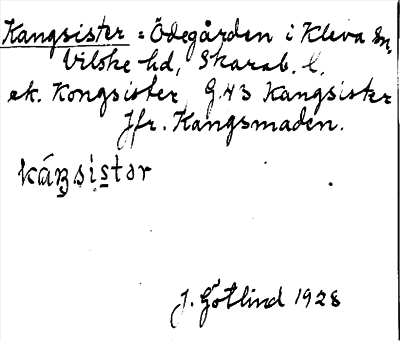 Kangsister = Ödegården i Kleva sn,
Vilske hd, Skarab. l.
ek. Kongsister, G.43 Kangsister
Jfr. Kangsmaden.
káŋsistər
J. Götlind 1928